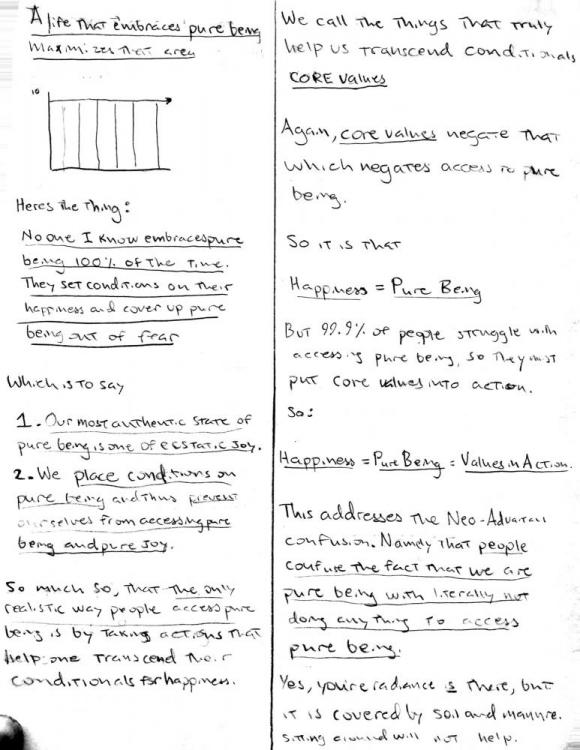 A life that embraces pure being
Maximizes that area
10
Heres the Thing:
No one I know embraces pure
being 100% of the Time.
They set conditions on their
happiness and cover up pure
being out of fear
Which is to say
1. Our most authentic state of
pure being is one of ecstatic joy.
2. We place conditions on
pure being and thus prevent
ourselves from accessing pure
being and pure joy.
So much so, that the only
realistic way people access pure
being is by taking actions that
help one transcend their
conditionals for happiness.
We call the Things That truly
help us transcend conditionals
CORE values
Again, core values negate that
which negates access to pure
being.
So it is that
Happiness = Pure Being
But 99.9% of people struggle with
accessing pure being, so they must
put core values into action.
So:
Happiness = Pure Being = Values in Action.
This addresses the Neo-Advaitan
confusion. Namely that people
confuse the fact that we are
pure being with literally not
doing anything to access
pure being.
Yes, you're radiance is there, but
it is covered by soil and manure.
sitting around will not help.